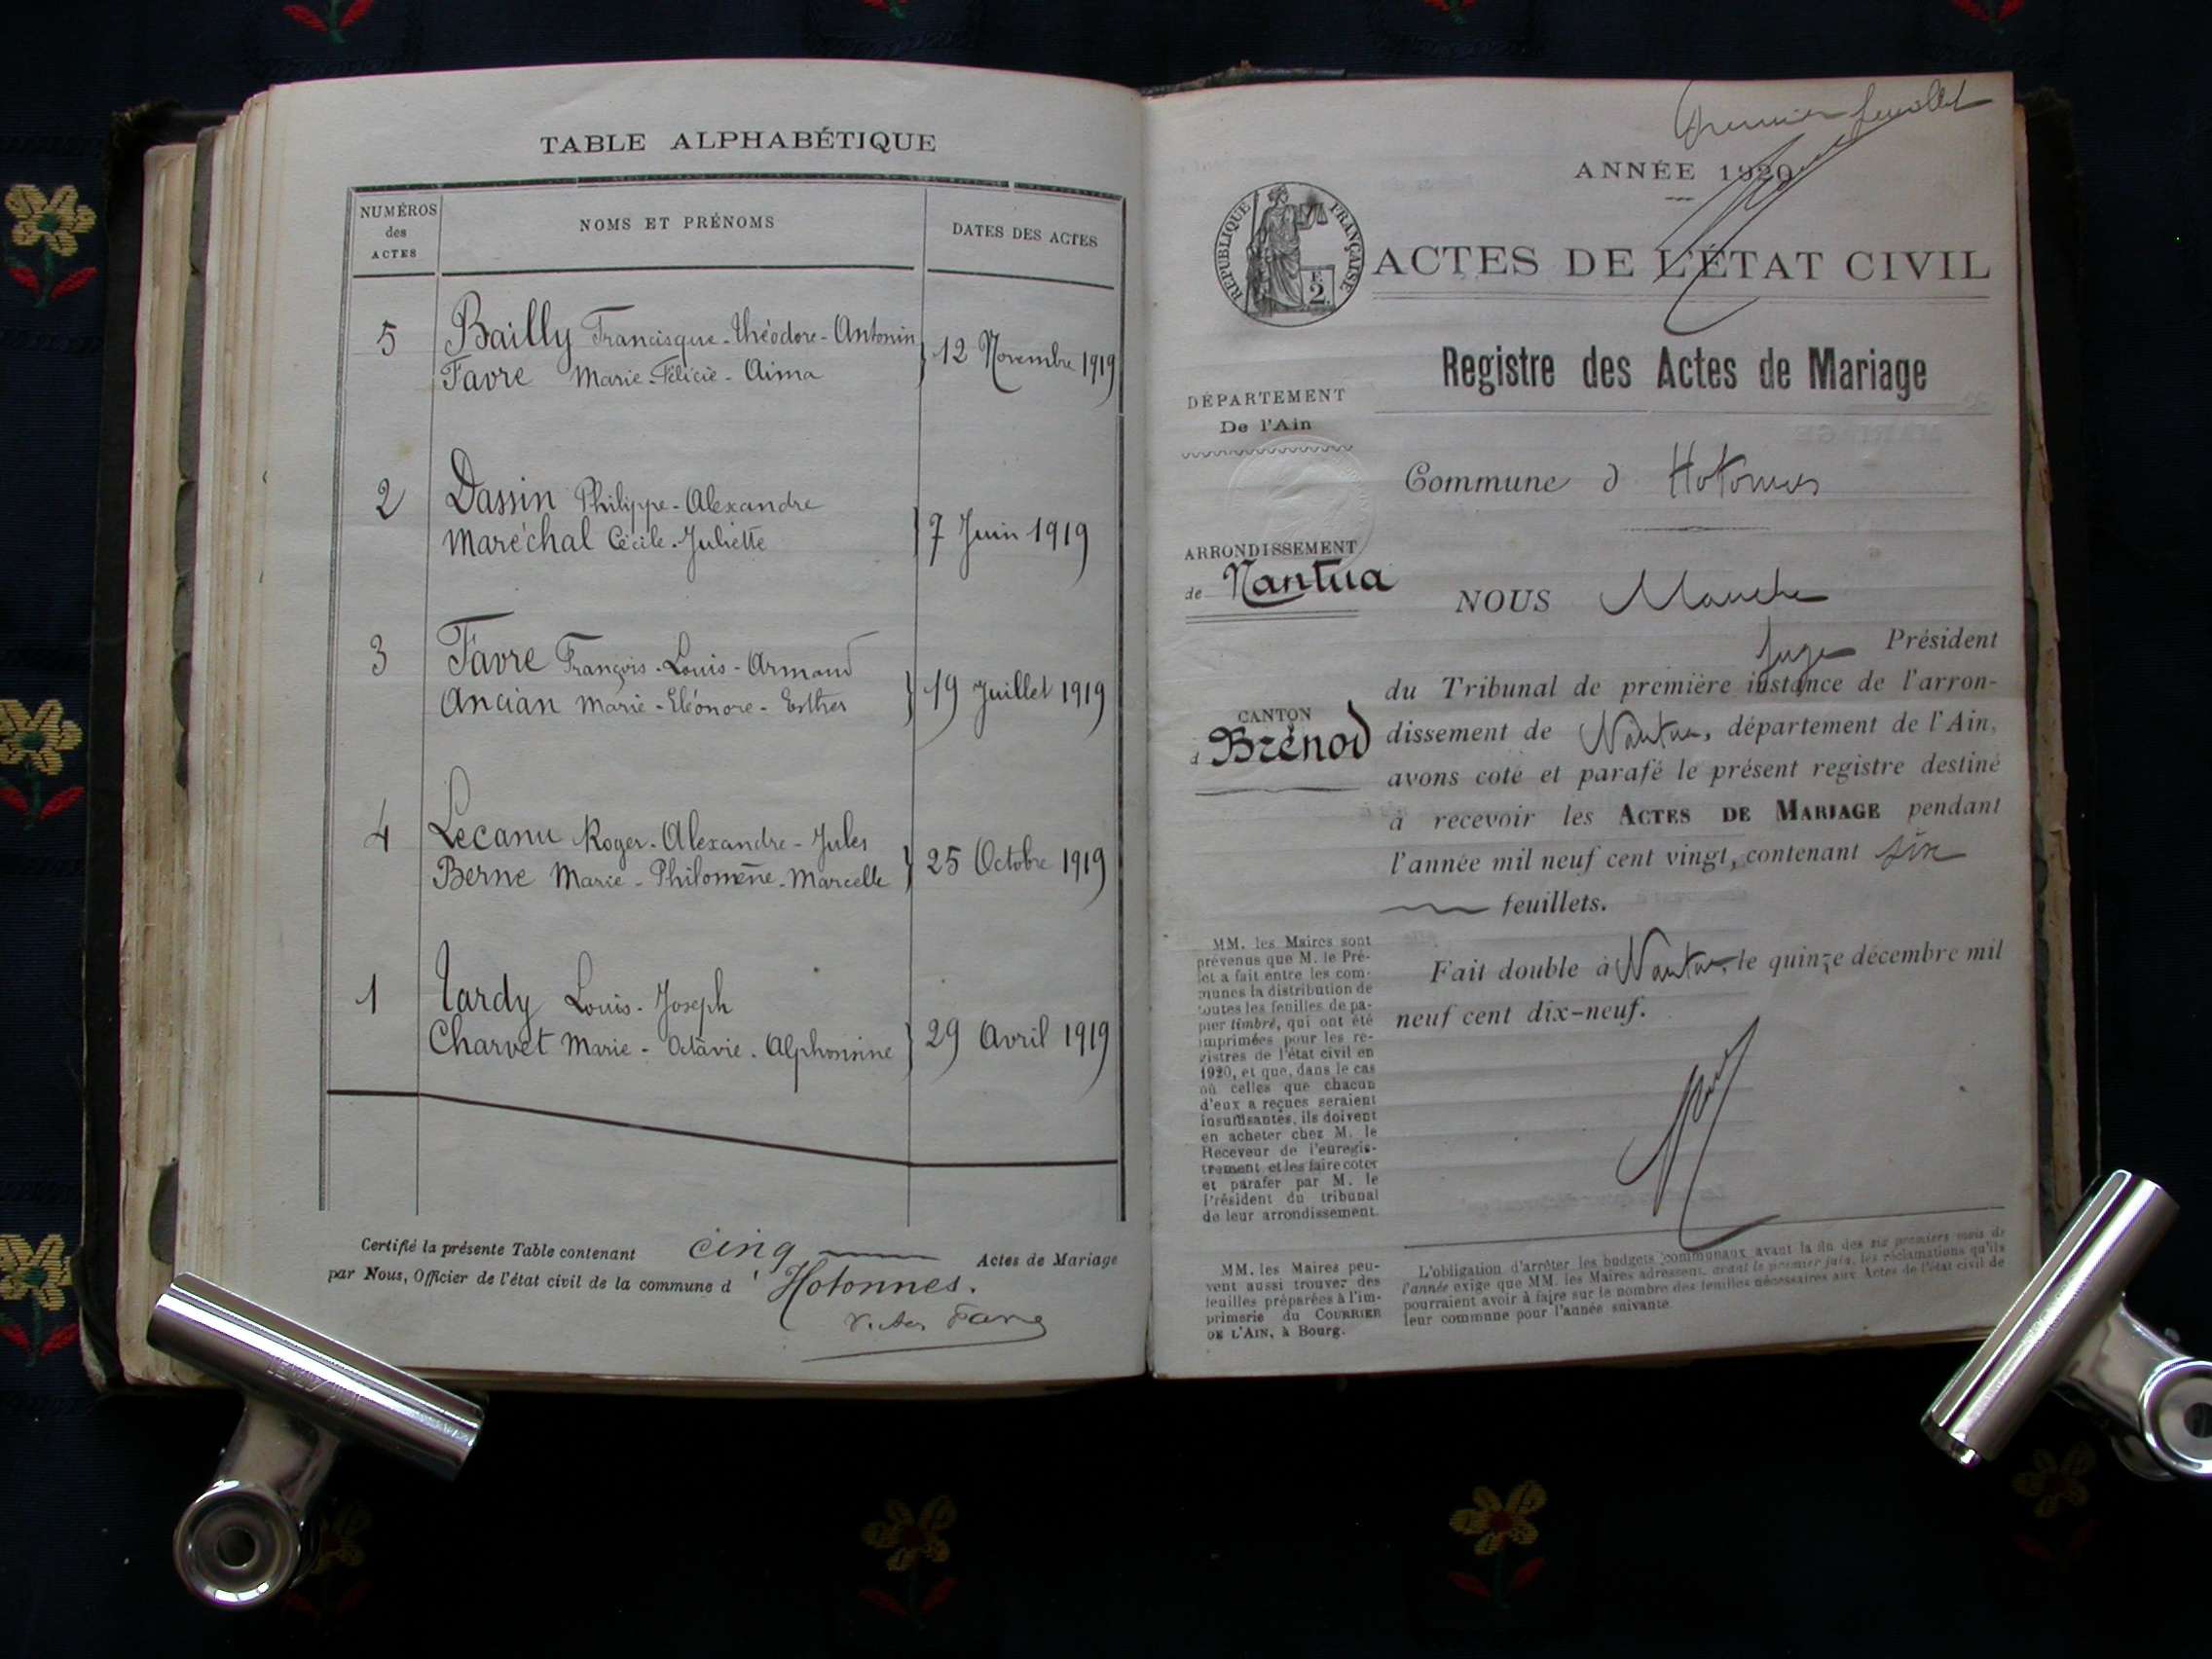 TABLE ALPHABÉTIQUE
NUMÉROS
des
ACTES
NOMS ET PRÉNOMS
DATES DES ACTES
5
Bailly Francisque-Théodore-Antonin
Favre Marie-Félicie-Aima
12 Novembre 1919
2
Dassin Philippe-Alexandre
Maréchal Cécile-Juliette
7 Juin 1919
3
Favre François-Louis-Armand
Ancian Marie-Eléonore-Esther
19 Juillet 1919
4
Lecanu Roger-Alexandre-Jules
Berne Marie-Philomène-Marcelle
25 Octobre 1919
1
Tardy Louis-Joseph
Charvet Marie-Octavie-Alphonsine
29 Avril 1919
Certifié la présente Table contenant cinq Actes de Mariage
par Nous, Officier de l'état civil de la commune d'Hotonnes.
Victor Favre
Premier feuillet
ANNÉE 1920
RÉPUBLIQUE FRANÇAISE
2
ACTES DE L'ÉTAT CIVIL
Registre des Actes de Mariage
DÉPARTEMENT
De l'Ain
Commune d Hotonnes
ARRONDISSEMENT
de Nantua
NOUS
Juge Président
CANTON
d Brénod
du Tribunal de première instance de l'arron-
dissement de Nantua, département de l'Ain,
avons coté et parafé le présent registre destiné
à recevoir les ACTES DE MARIAGE pendant
l'année mil neuf cent vingt, contenant six
feuillets.
Fait double à Nantua, le quinze décembre mil
neuf cent dix-neuf.
MM. les Maires sont
prévenus que M. le Pré-
fet a fait entre les com-
munes la distribution de
toutes les feuilles de pa-
pier timbré, qui ont été
imprimées pour les re-
gistres de l'état civil en
1920, et que, dans le cas
où celles que chacun
d'eux a reçues seraient
insuffisantes, ils doivent
en acheter chez M. le
Receveur de l'enregis-
trement et les faire coter
et parafer par M. le
Président du tribunal
de leur arrondissement.
MM. les Maires peu-
vent aussi trouver des
feuilles préparées à l'im-
primerie du COURRIER
DE L'AIN, à Bourg.
L'obligation d'arrêter les budgets communaux avant la fin des six premiers mois de
l'année exige que MM. les Maires adressent, avant le premier juin, les réclamations qu'ils
pourraient avoir à faire sur le nombre des feuilles nécessaires aux Actes de l'état civil de
leur commune pour l'année suivante.